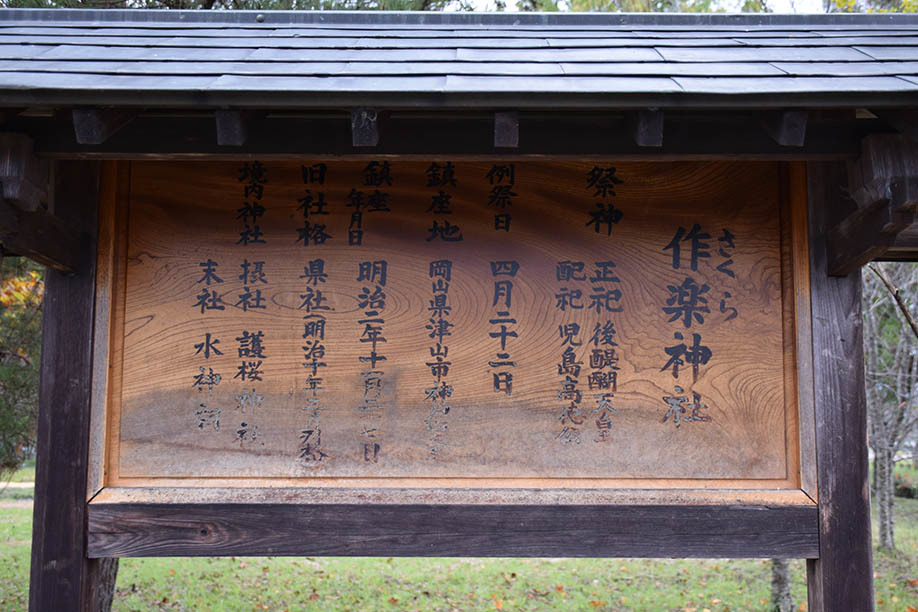 さくら
作楽神社
祭神
正祀 後醍醐天皇
配祀 児島高徳
例祭日 四月二十二日
鎮座地 岡山県津山市神代
鎮座年月日 明治二年十一月二十七日
旧社格 県社(明治十年
境内神社
摂社 護桜神社
末社 水神